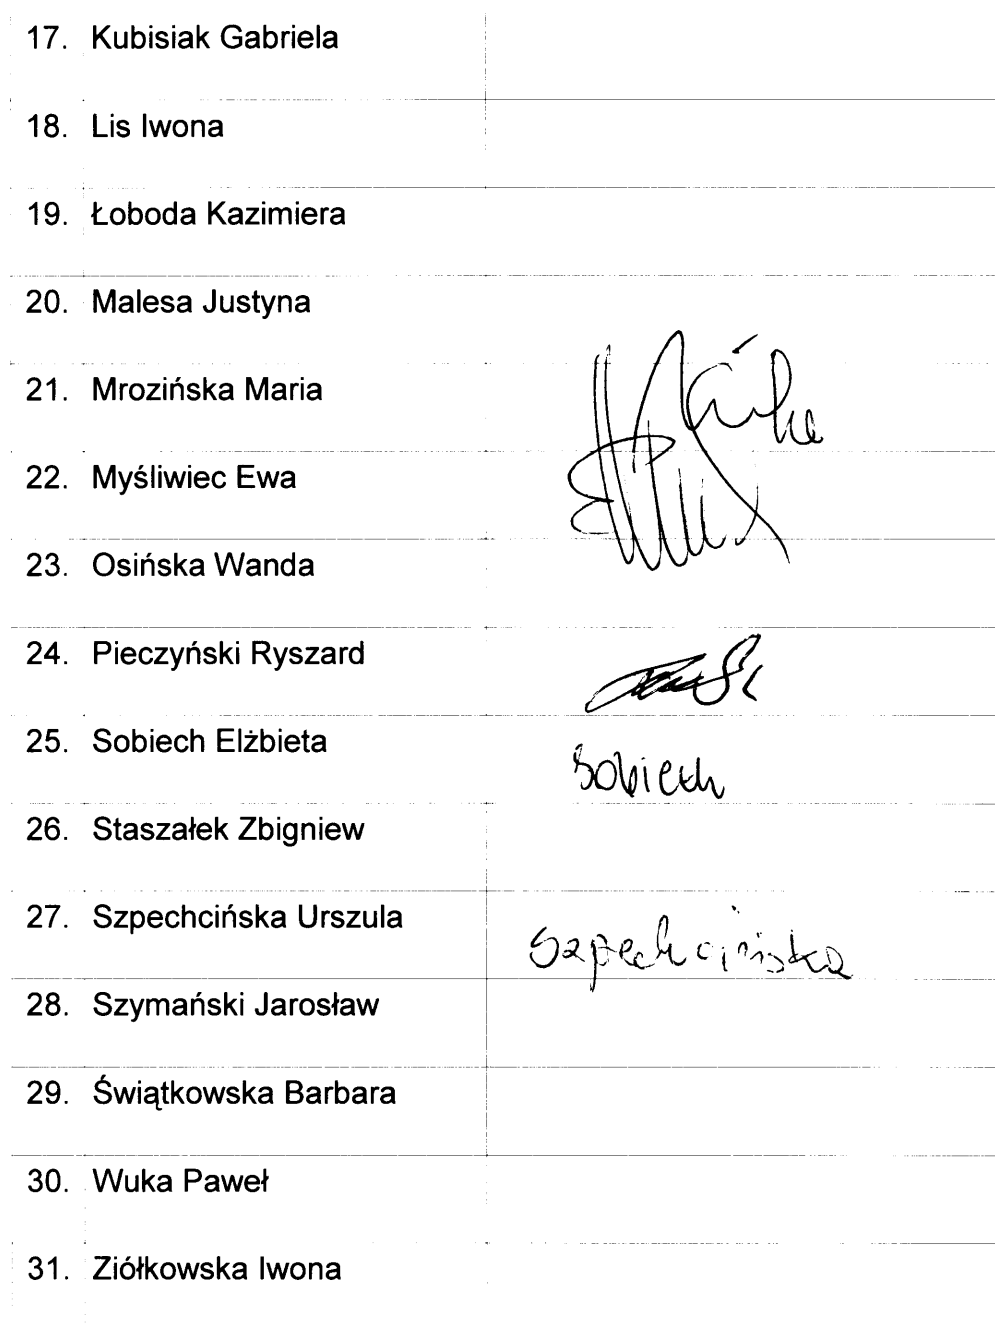 17. Kubisiak Gabriela
18. Lis Iwona
19. Łoboda Kazimiera
20. Malesa Justyna
21. Mrozińska Maria
22. Myśliwiec Ewa
23. Osińska Wanda
24. Pieczyński Ryszard
25. Sobiech Elżbieta Sobiech
26. Staszałek Zbigniew
27. Szpechcińska Urszula Szpechcińska
28. Szymański Jarosław
29. Świątkowska Barbara
30. Wuka Paweł
31. Ziółkowska Iwona